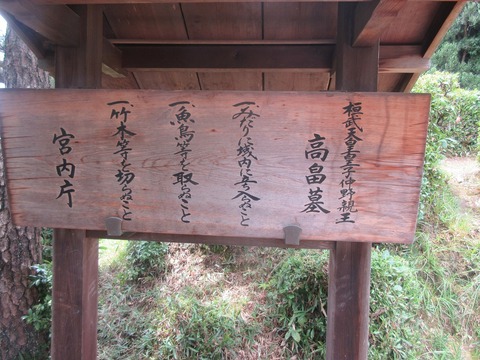 桓武天皇皇子仲野親王
高畠墓
一、みだりに域内に立入らぬこと
一、魚鳥等を取らぬこと
一、竹木等を切らぬこと
宮内庁